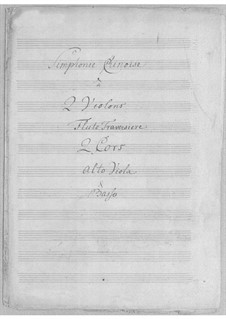 Simphonie Chinoise
à
2 Violons
Flute Traversiere
2 Cors
Alto Viola
Basso